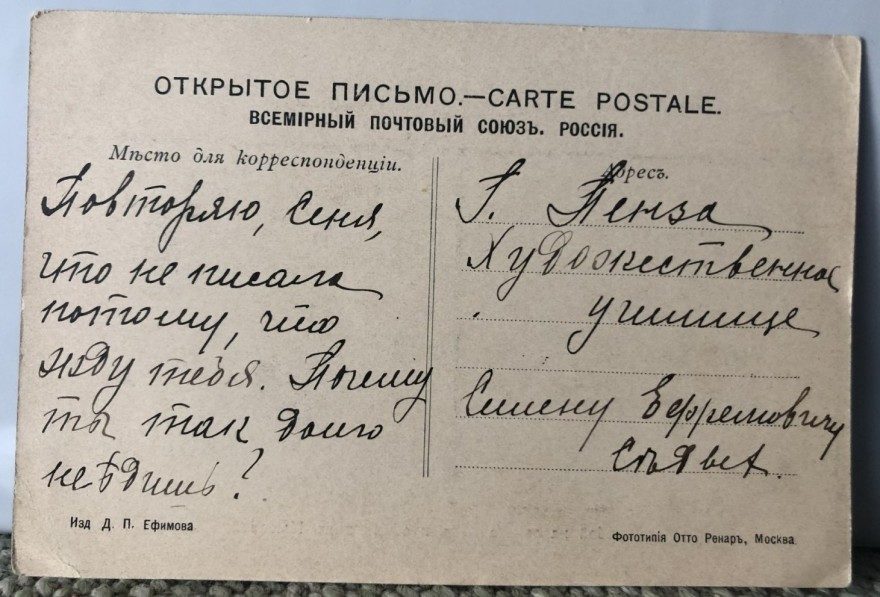 ОТКРЫТОЕ ПИСЬМО.—CARTE POSTALE.
ВСЕМІРНЫЙ ПОЧТОВЫЙ СОЮЗЪ. РОССІЯ.
Мѣсто для корреспонденціи.
Повторяю, Сеня,
что не писала
потому, что
жду тебя. Почему
ты так долго
не ѣдишь?
Адресъ.
Г. Пенза
Художественное
училище
Симену Ефремовичу
Изд Д. П. Ефимова
Фототипія Отто Ренаръ, Москва.